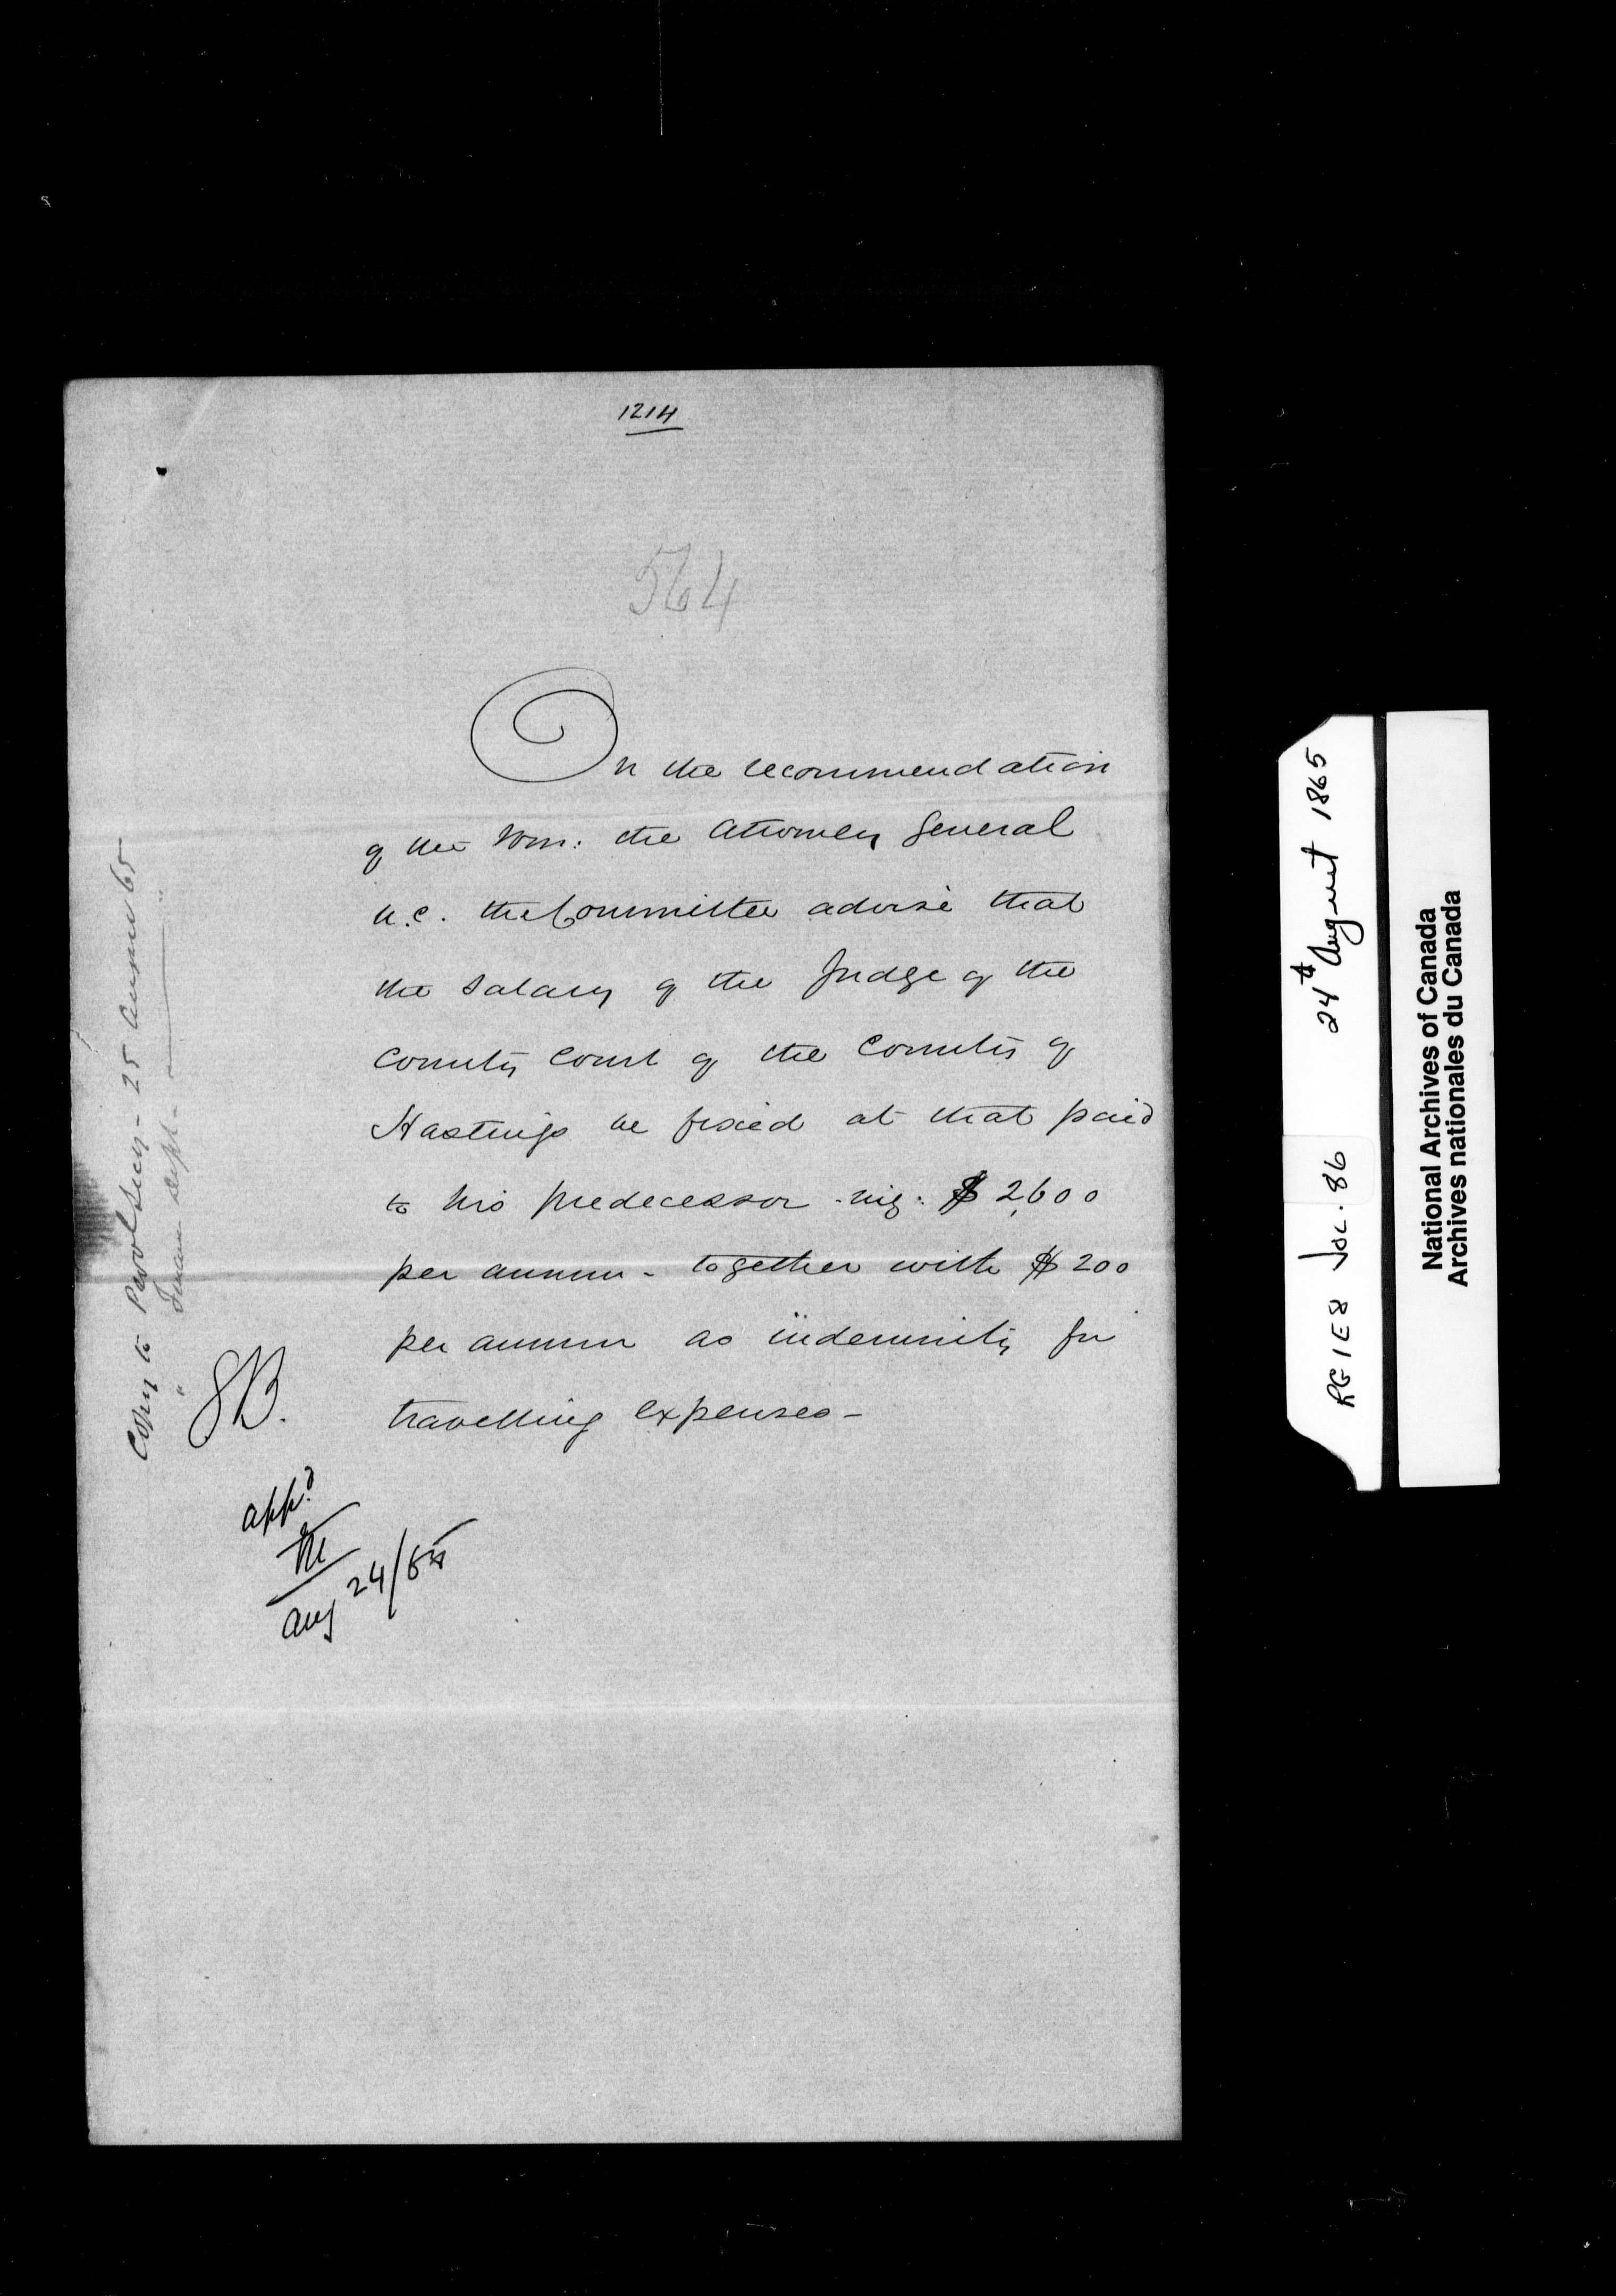 1214
564
On the recommendation
of the Hon: the Attorney General
U.C. the Committee advise that
the Salary of the Judge of the
County Court of the County of
Hastings be fixed at that paid
to his predecessor viz: $2,600
per annum - together with $200
per annum as indemnity for
travelling expenses -
Copy to Provl Secy - 25 August 65
" Finance Dept -
appd
Aug 24/65
RG1E8 Vol. 86 24th August 1865
National Archives of Canada
Archives nationales du Canada